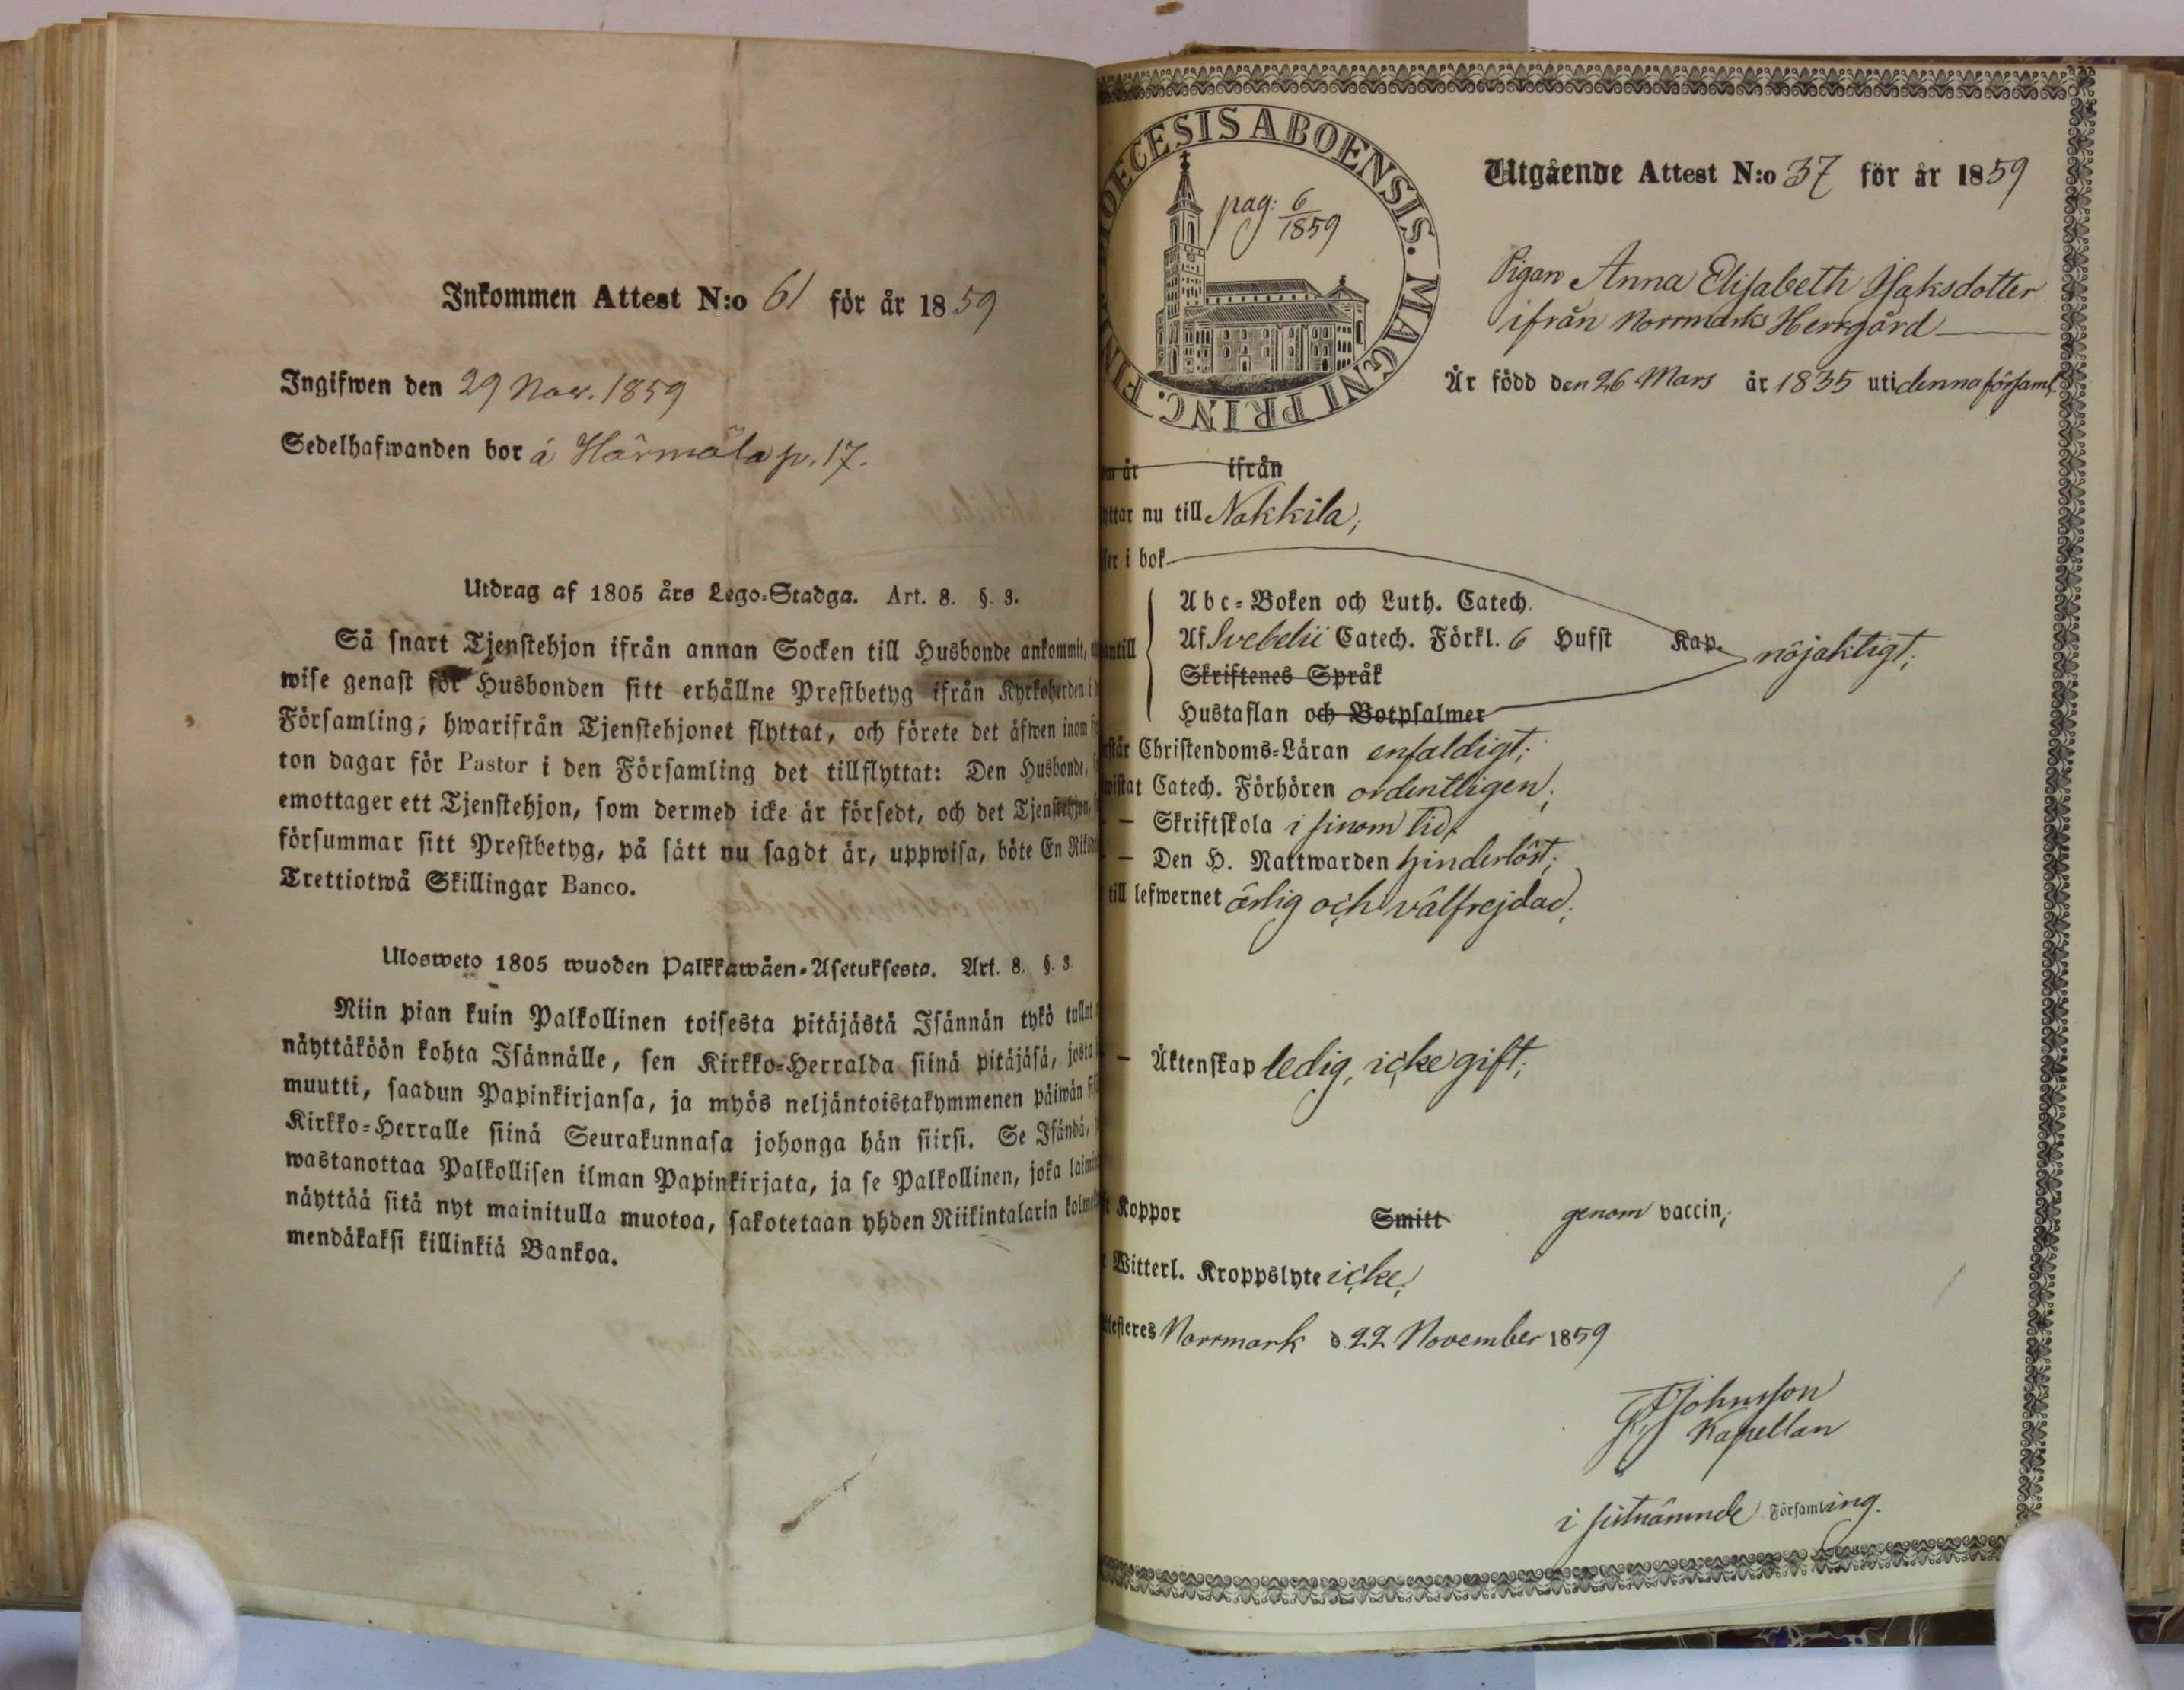 Inkommen Attest N:o 61 för år 1859
Ingifwen den 29 Nov. 1859
Sedelhafwanden bor á Härmälä p. 17.
Utdrag af 1805 års Lego-Stadga. Art. 8. §. 3.
Så snart Tjenstehjon ifrån annan Socken till Husbonde ankommit,
wise genast för Husbonden sitt erhållne Prestbetyg ifrån Kyrkoherden i
Församling, hwarifrån Tjenstehjonet flyttat, och förete det äfwen inom
ton dagar för Pastor i den Församling det tillflyttat: Den Husbonde,
emottager ett Tjenstehjon, som dermed icke är försedt, och det Tjenstehjon,
försummar sitt Prestbetyg, på sätt nu sagdt är, uppwisa, böte En
Trettiotwå Skillingar Banco.
Ulosweto 1805 wuoden Palkkawäen-Asetuksesta. Art. 8. §. 3.
Niin pian kuin Palkollinen toisesta pitäjästä Isännän tykö tullut
näyttäköön kohta Isännälle, sen Kirkko-Herralda siinä pitäjäsä, josta
muutti, saadun Papinkirjansa, ja myös neljäntoistakymmenen päiwän
Kirkko-Herralle siinä Seurakunnasa johonga hän siirsi. Se Isändä,
wastanottaa Palkollisen ilman Papinkirjata, ja se Palkollinen, joka
näyttää sitä nyt mainitulla muotoa, sakotetaan yhden Riikintalarin
mendäkaksi killinkiä Bankoa.
OECESIS ABOENSIS. MAGNI PRINC. FIN
pag: 6/1859
Utgående Attest N:o 37 för år 1859
Pigan Anna Elisabeth Isaksdotter
ifrån Norrmarks Herrgård
Är född den 26 Mars år 1835 uti denna församl.
år ifrån
ttar nu till Nakkila,
er i bok
Abc-Boken och Luth. Catech.
antill Af Svebelii Catech. Förkl. 6 Hufst Kap. nöjaktigt;
Skriftenes Språk
Hustaflan och Botpsalmer
står Christendoms-Läran enfaldigt;
wistat Catech. Förhören ordentligen;
— Skriftskola i sinom tid;
— Den H. Nattwarden hinderlöst;
till lefwernet ärlig och välfrejdad;
— Äktenskap ledig, icke gift;
Koppor Smitt genom vaccin;
Witterl. Kroppslyte icke,
ttesteres Norrmark d. 22 November 1859
Johnsson
Kapellan
i sistnämnde Församling.